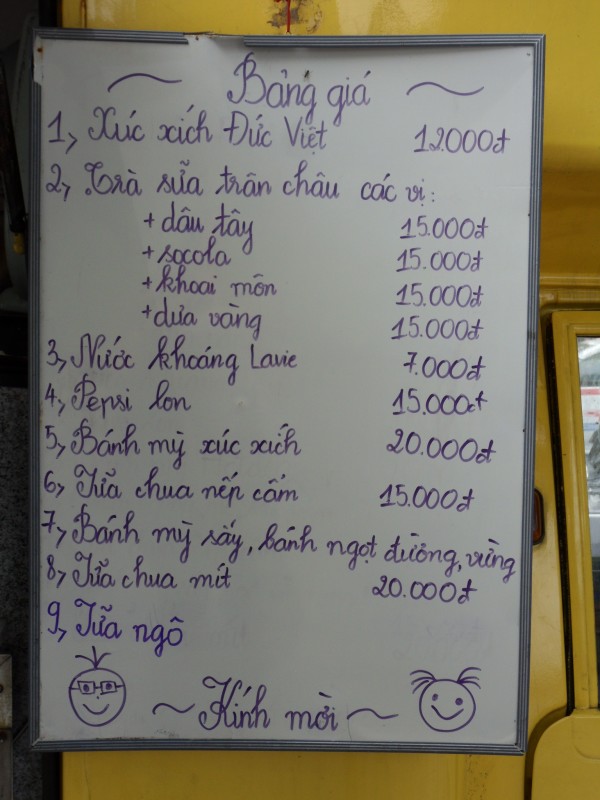 Bảng giá
1, Xúc xích Đức Việt 12.000đ
2, Trà sữa trân châu các vị:
+ dâu tây 15.000đ
+ socola 15.000đ
+ khoai môn 15.000đ
+ dưa vàng 15.000đ
3, Nước khoáng Lavie 7.000đ
4, Pepsi lon 15.000đ
5, Bánh mỳ xúc xích 20.000đ
6, Sữa chua nếp cẩm 15.000đ
7, Bánh mỳ sấy, bánh ngọt đường, vừng
8, Sữa chua mít 20.000đ
9, Sữa ngô
~ Kính mời ~